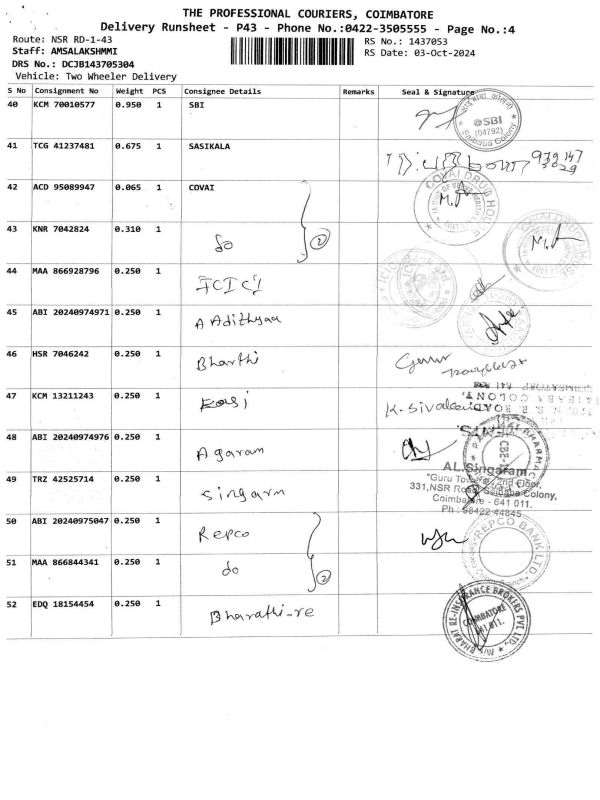 THE PROFESSIONAL COURIERS, COIMBATORE
Delivery Runsheet - P43 - Phone No.:0422-3505555 - Page No.:4
Route: NSR RD-1-43
RS No.: 1437053
Staff: AMSALAKSHMMI
RS Date: 03-Oct-2024
DRS No.: DCJB143705304
Vehicle: Two Wheeler Delivery
S No Consignment No Weight PCS Consignee Details Remarks Seal & Signature
40 KCM 70010577 0.950 1 SBI
@SBI
(04792)
Saibaba Colony
41 TCG 41237481 0.675 1 SASIKALA
42 ACD 95089947 0.065 1 COVAI
COVAI DRUG HOUSE
43 KNR 7042824 0.310 1 do 2
COVAI DRUG HOUSE
44 MAA 866928796 0.250 1 ICICI
45 ABI 20240974971 0.250 1 A Adithyaa
46 HSR 7046242 0.250 1 Bharthi
47 KCM 13211243 0.250 1 Kasi
48 ABI 20240974976 0.250 1 Agaram
49 TRZ 42525714 0.250 1 Singarm
AL.Singaram
"Guru Towers" 2nd Floor,
331,NSR Road, Saibaba Colony,
Coimbatore - 641 011.
Ph : 98422 44845
50 ABI 20240975047 0.250 1 Repco
REPCO BANK LTD.
51 MAA 866844341 0.250 1 do 2
52 EDQ 18154454 0.250 1 Bharathi-re
BHARAT RE-INSURANCE BROKERS PVT LTD
COIMBATORE
641 011.